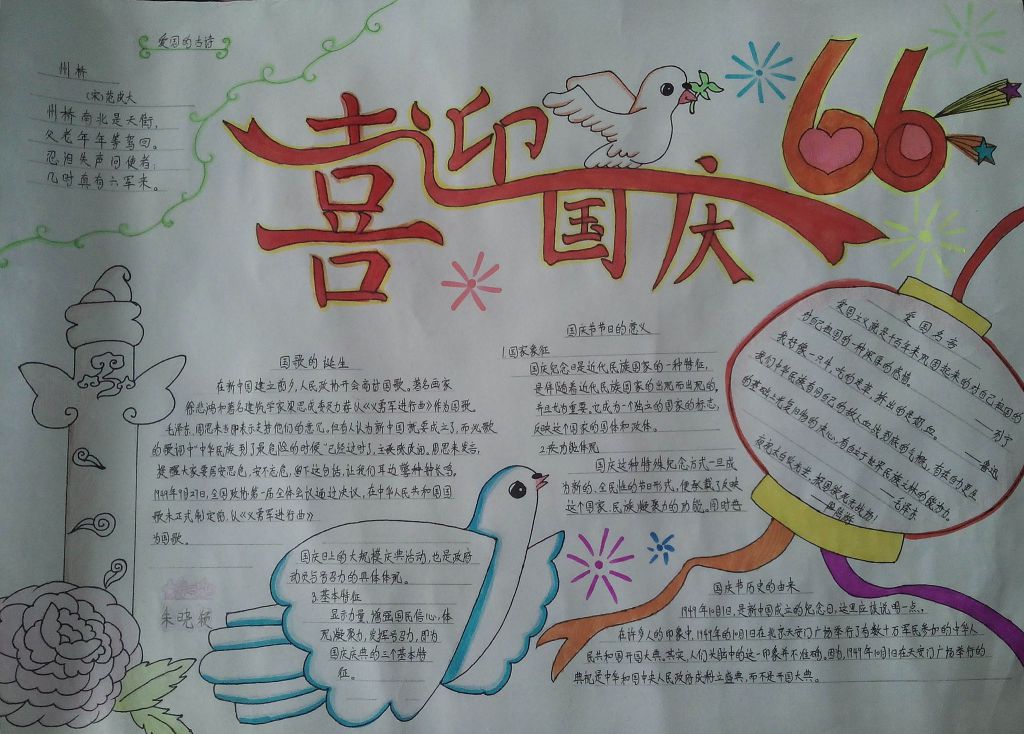 爱国的古诗
州桥
(宋)范成大
州桥南北是天街，
父老年年等驾回。
忍泪失声问使者：
几时真有六军来。
喜迎国庆
66
国歌的诞生
在新中国建立前夕，人民政协开会商讨国歌。著名画家
徐悲鸿和著名建筑学家梁思成委员力荐以《义勇军进行曲》作为国歌。
毛泽东、周恩来当即表示支持他们的意见，但有人认为新中国就要成立了，而此歌
的歌词中"中华民族到了最危险的时候"已经过时了，主张修改词。周恩来发言，
提醒大家要居安思危，安不忘危，留下这句话，让我们耳边警钟长鸣。
1949年9月27日，全国政协第一届全体会议通过决议，在中华人民共和国国
歌未正式制定前，以《义勇军进行曲》
为国歌。
国庆节节日的意义
1.国家象征
国庆纪念日是近代民族国家的一种特征，
是伴随着近代民族国家的出现而出现的，
并且尤为重要。它成为一个独立的国家的标志，
反映这个国家的国体和政体。
2.功能体现
国庆这种特殊纪念方式一旦成
为新的、全民性的节日形式，便承载了反映
这个国家、民族凝聚力的功能。同时在
国庆日上的大规模庆典活动，也是政府
动员与号召力的具体体现。
3.基本特征
显示力量、增强国民信心，体
现凝聚力，发挥号召力，即为
国庆庆典的三个基本特
征。
爱国名言
爱国主义就是千百年来巩固起来的对自己祖国的
对自己祖国的一种深厚的感情。
——列宁
我好像一只牛，吃的是草，挤出的是奶、血。
——鲁迅
我们中华民族有同自己的敌人血战到底的气概，有在自力更生
的基础上光复旧物的决心，有自立于世界民族之林的能力。
——毛泽东
国庆节历史的由来
1949年10月1日，是新中国成立的纪念日。这里应该说明一点，
在许多人的印象中，1949年的10月1日在北京天安门广场举行了有数十万军民参加的中华人
民共和国开国大典。其实，人们头脑中的这一印象并不准确。因为，1949年10月1日在天安门广场举行的
典礼是中华人民共和国中央人民政府成立盛典，而不是开国大典。
朱晓颖